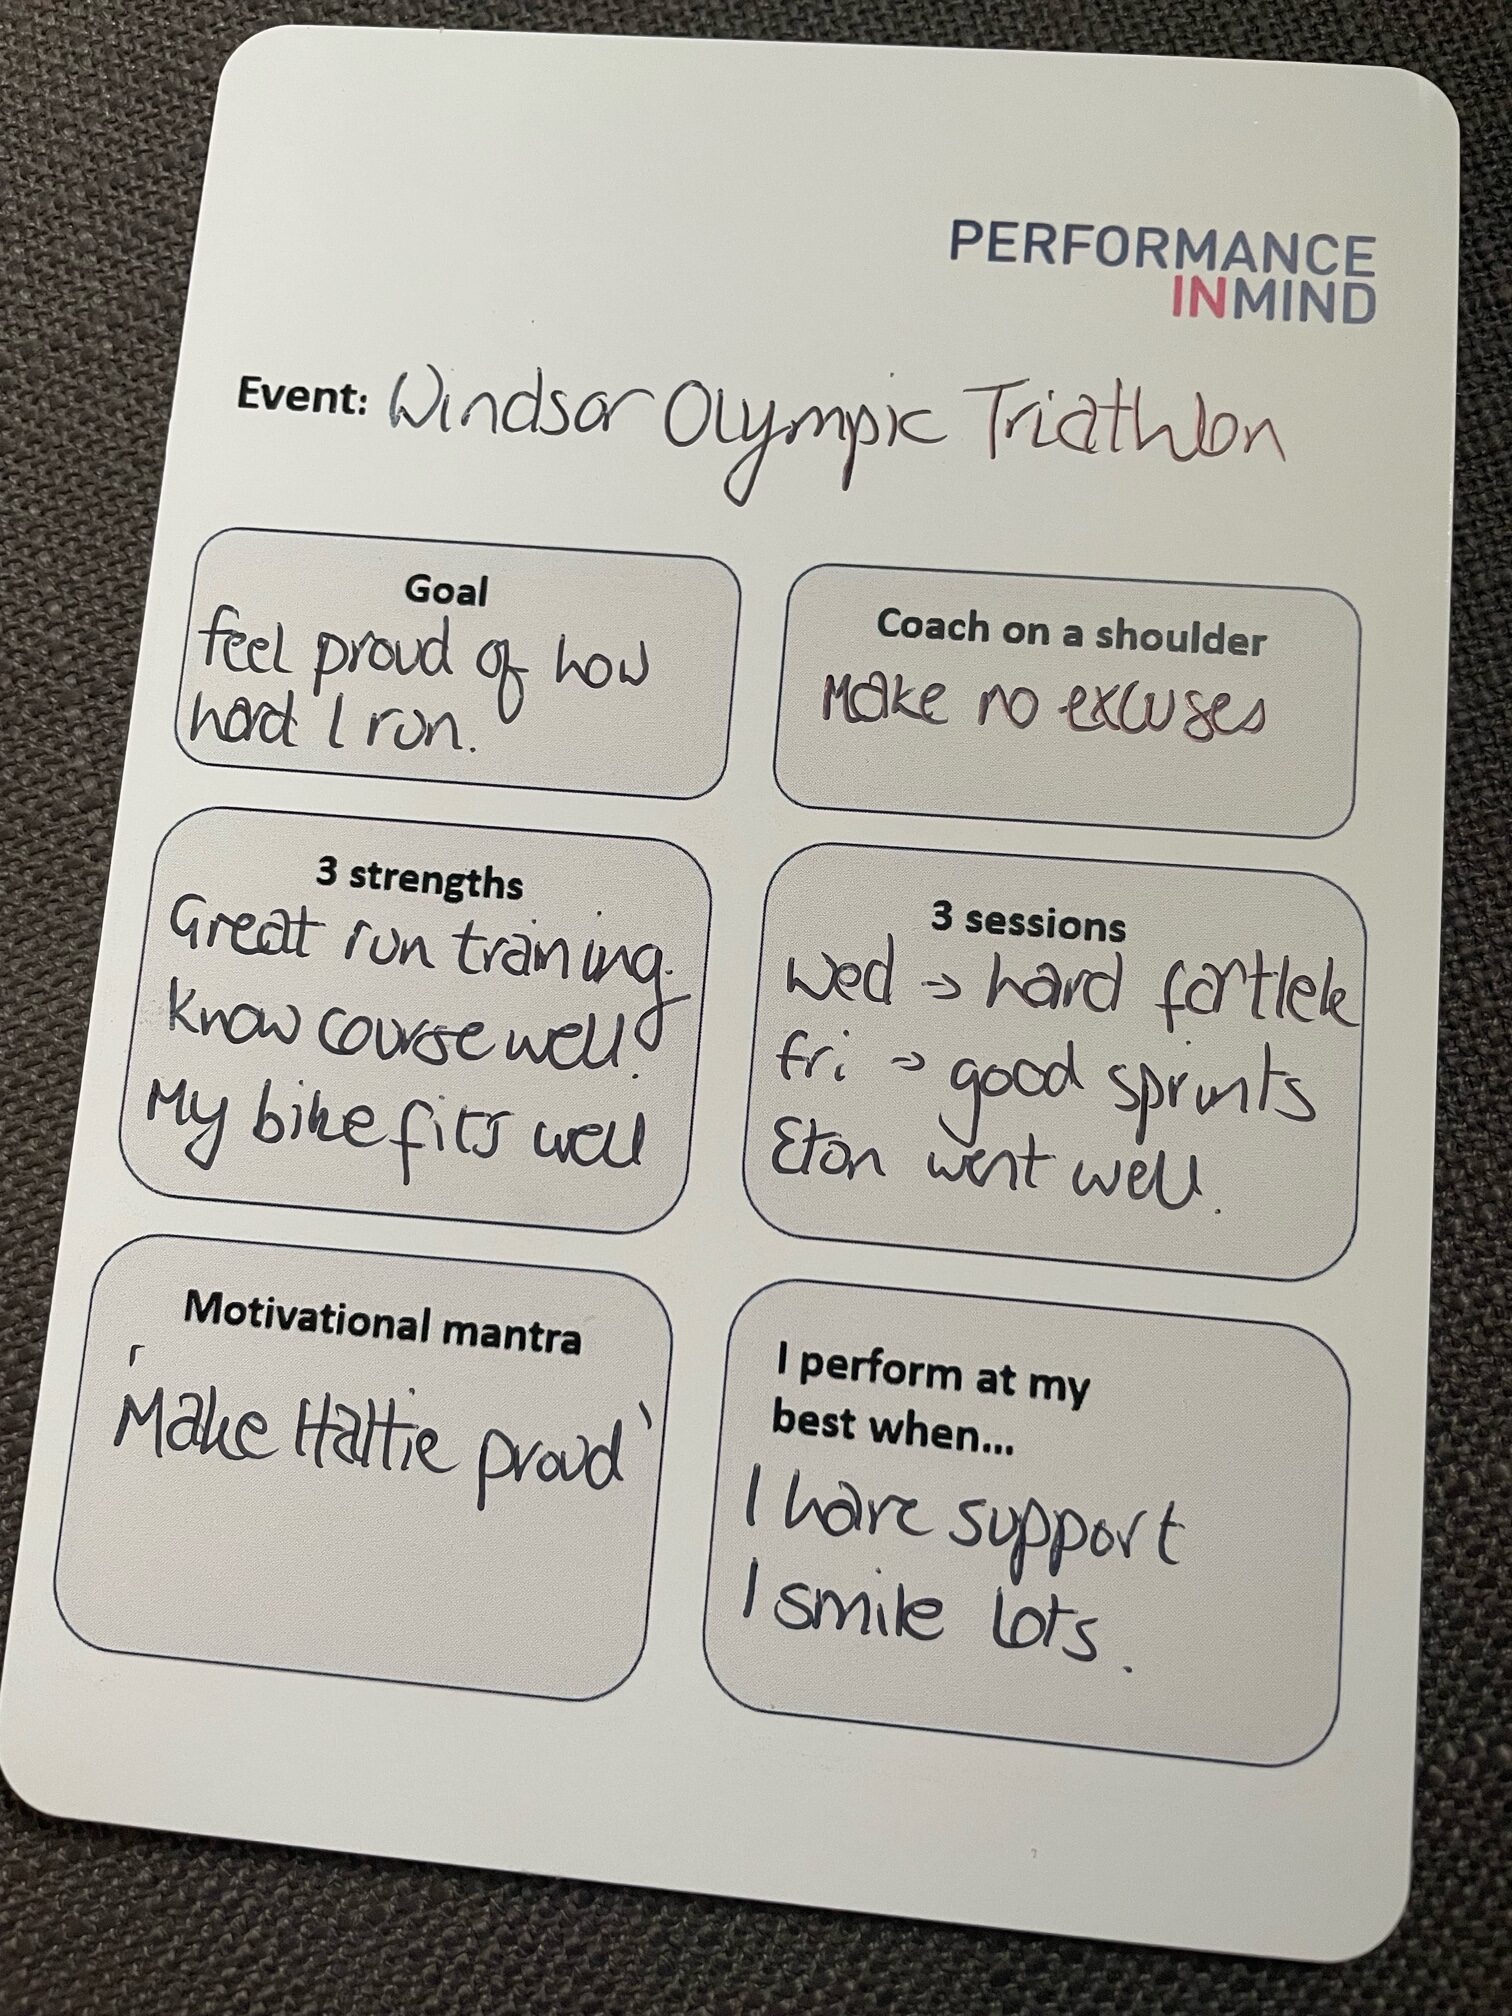 PERFORMANCE
INMIND
Event: Windsor Olympic Triathlon
Goal
feel proud of how
hard I run.
Coach on a shoulder
Make no excuses
3 strengths
Great run training.
Know course well.
My bike fits well
3 sessions
Wed → hard fartlek
Fri → good sprints
Eton went well.
Motivational mantra
'Make Hattie proud'
I perform at my
best when...
I have support
I smile lots.